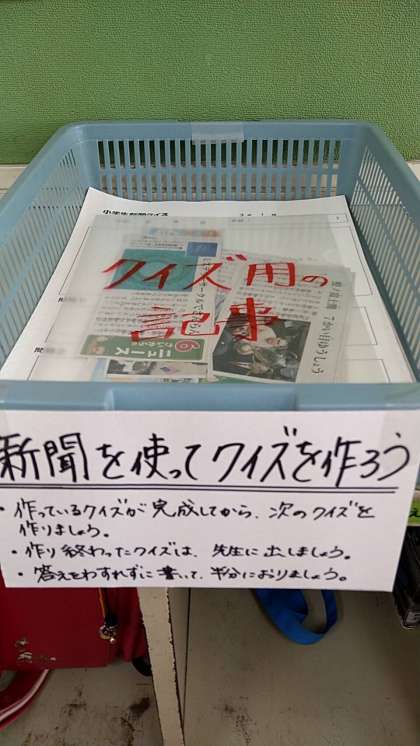 小学生新聞クイズ
クイズ用の
記事
ニュース
新聞を使ってクイズを作ろう
・作っているクイズが完成してから、次のクイズを
作りましょう。
・作り終わったクイズは、先生に出しましょう。
・答えをわすれずに書いて、半分におりましょう。